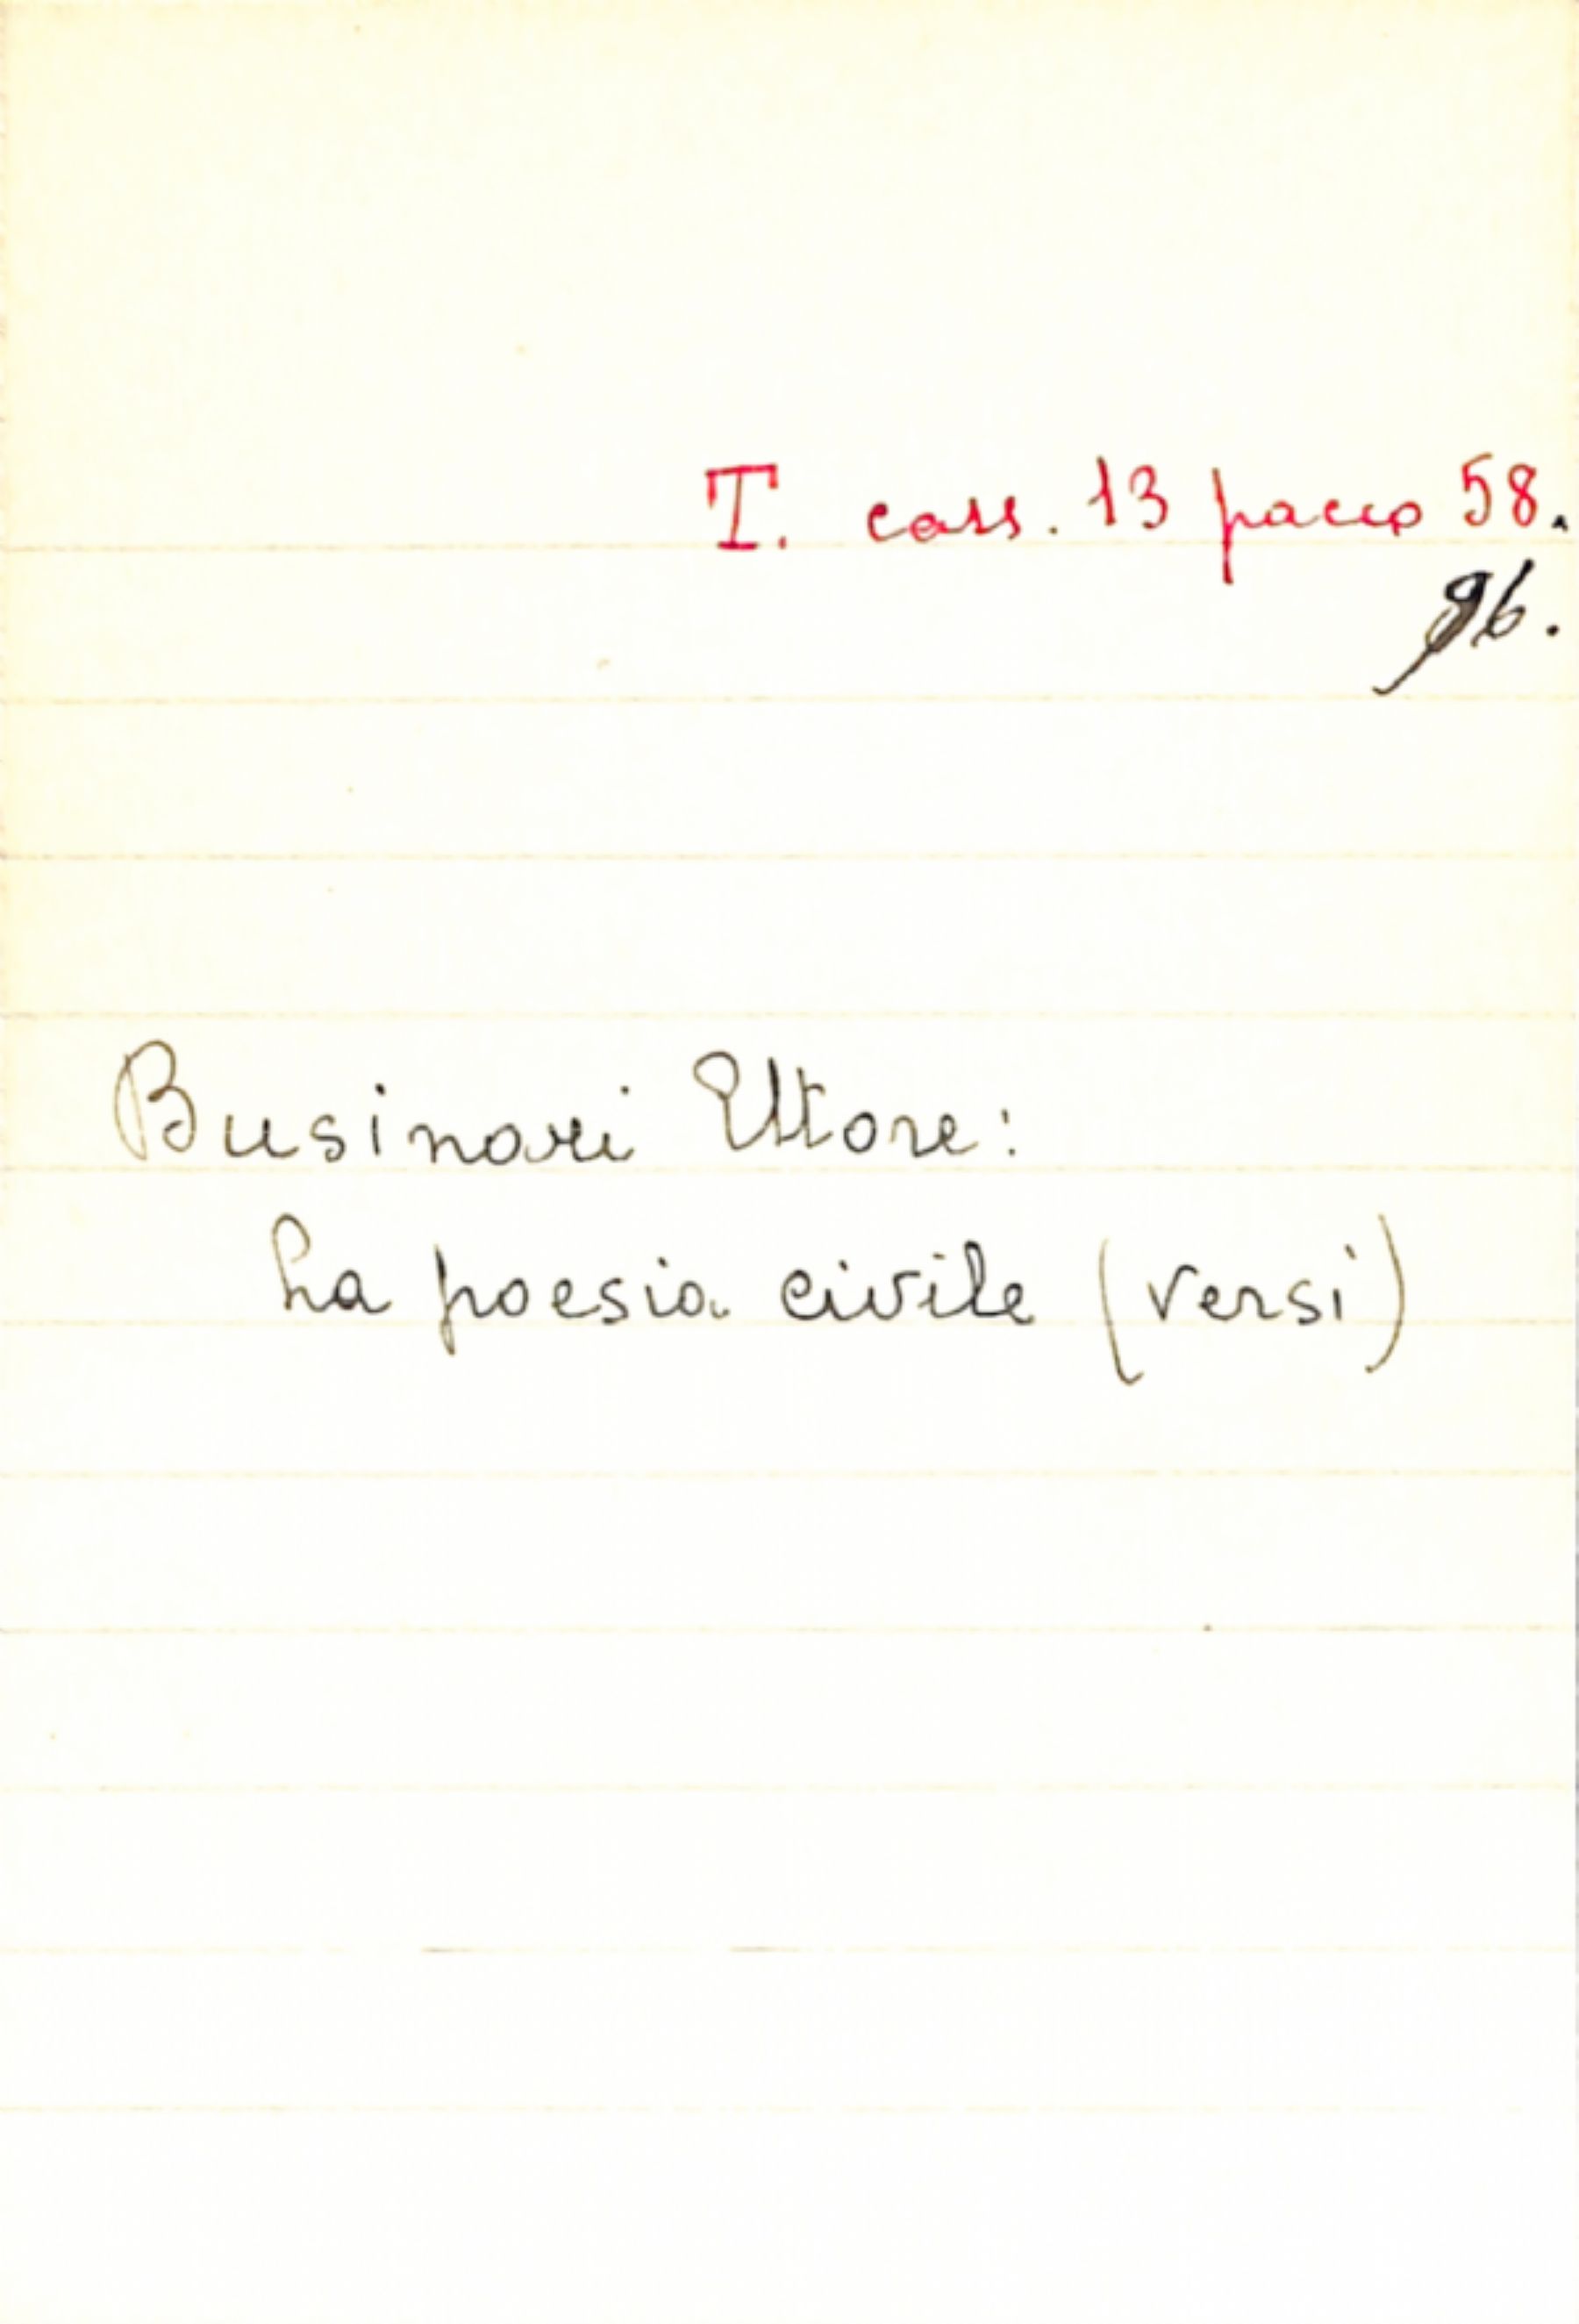 T. cass. 13 pacco 58.
96.
Businari Ettore:
La poesia civile (versi)